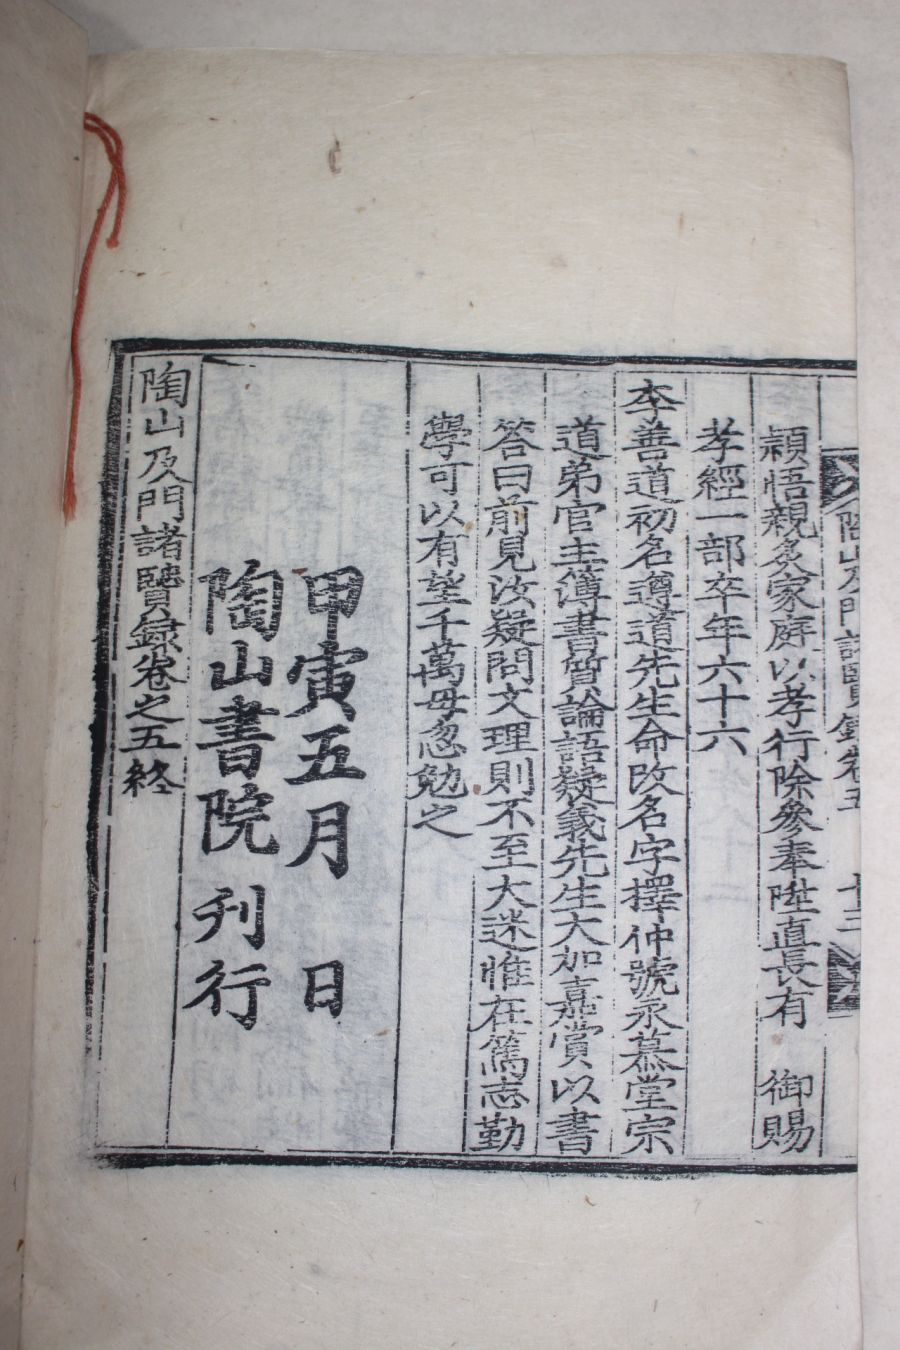 陶山及門諸賢錄卷五 十三
穎悟親炙家庭以孝行除參奉陞直長有 御賜
孝經一部卒年六十六
李善道初名遵道先生命改名字擇仲號永慕堂宗
道弟官主簿書質論語疑義先生大加嘉賞以書
答曰前見汝疑問文理則不至大迷惟在篤志勤
學可以有望千萬毋忽勉之
甲寅五月 日
陶山書院刊行
陶山及門諸賢錄卷之五終